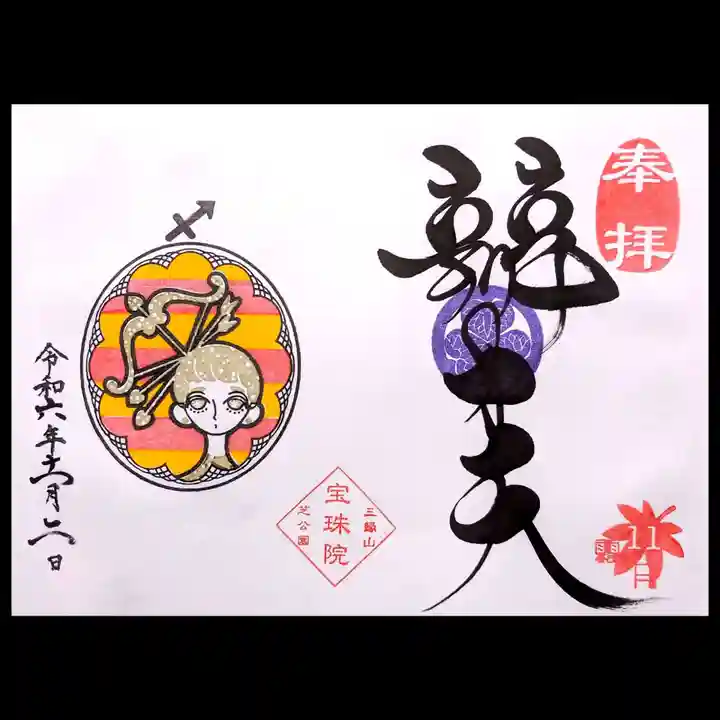 奉拝
辯才天
11月
三縁山
宝珠院
芝公園
令和六年十一月二日